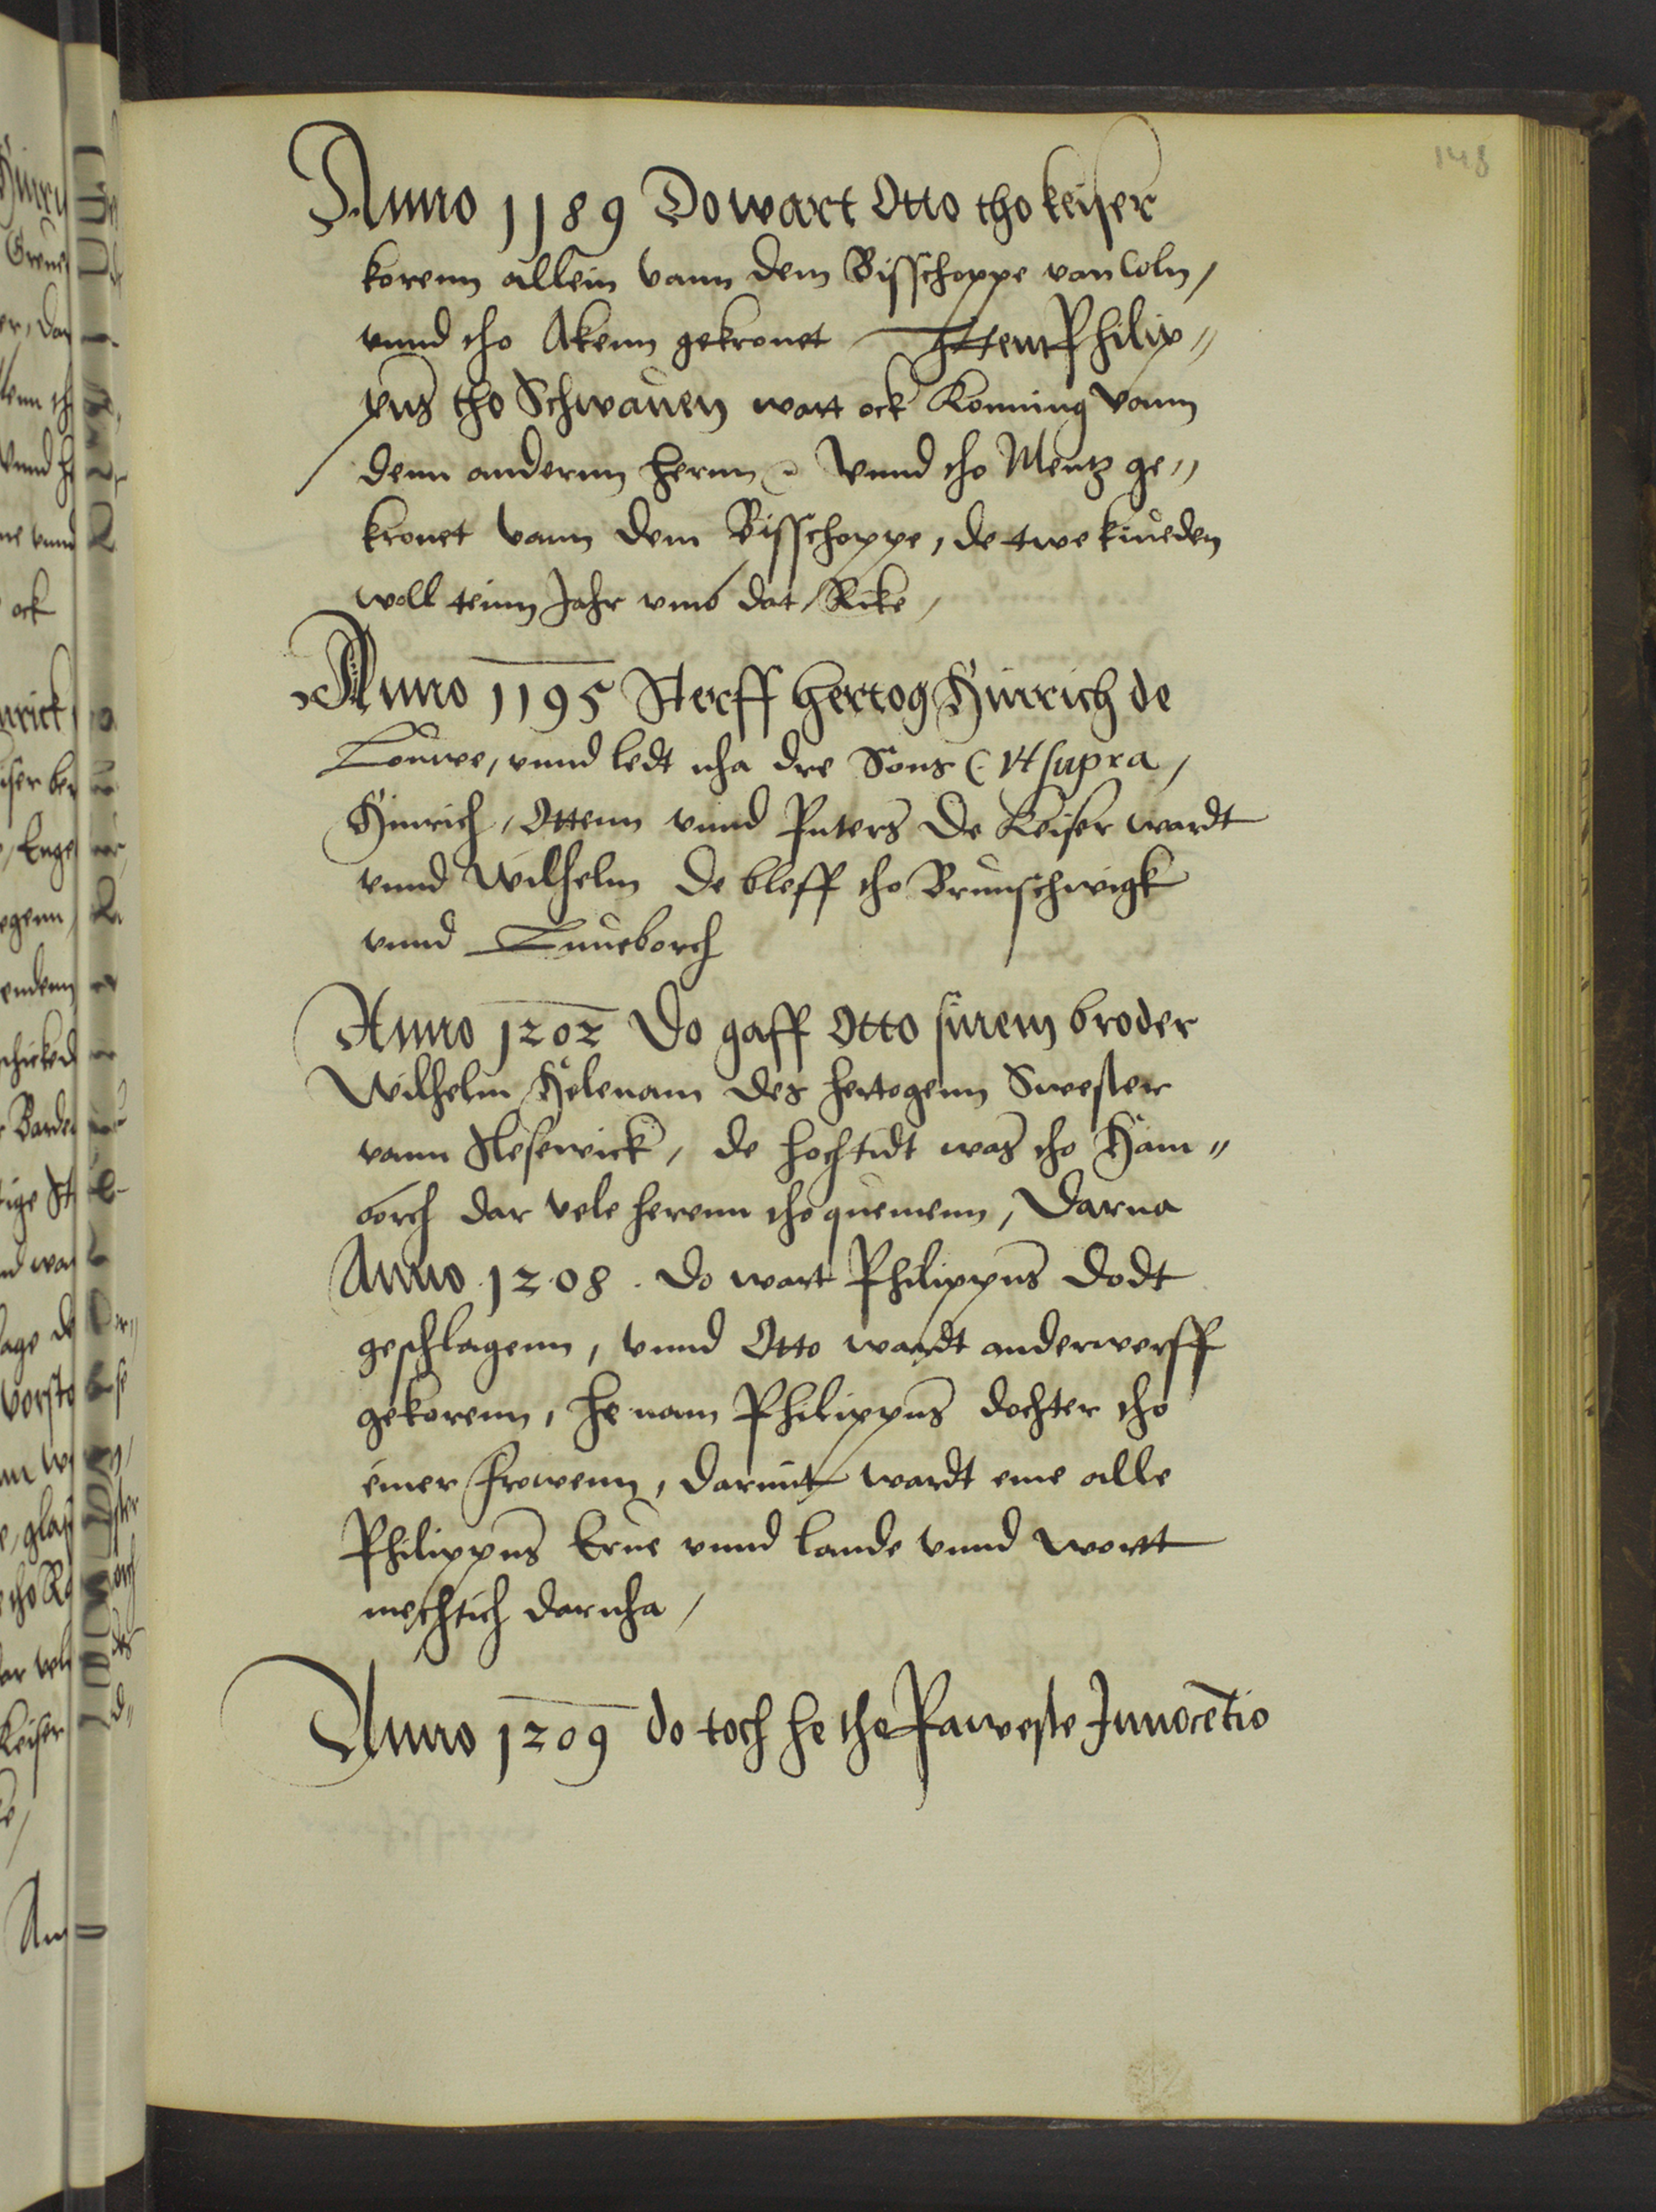 148
Anno 1189 Do wart Otto tho keiser
korenn allein vann dem Bisschoppe van Coln,
vnnd tho Akenn gekronet Ittem Philip„
pus tho Schwauen wart ock Konning vann
denn andernn hernn vnnd tho Mentz ge„
kronet vann dem Bisschoppe, de twe kiueden
woll teinn Jahr vmb dat Rike,
Anno 1195 Sterff Hertog Hinrich de
Louwe, vnnd ledt nha dre Sons (: vt supra,
Hinrich, Ottenn vnnd De Keiser wardt
vnnd Wilhelm De bleff tho Brunschwigk
vnnd Luneborch
Anno 1202 Do gaff Otto sinem broder
Wilhelm Helenam des hertogenn Swester
vann Slesewick, de hochtidt was tho Ham„
borch dar vele herenn tho quemenn, Darna
Anno 1208. do wart Philippus dodt
geschlagenn, vnnd Otto wardt anderwerff
gekorenn, he nam Philippus dochter tho
einer frowenn, darmit wardt eme alle
Philippus Erue vnnd lande vnnd wortt
mechtich darnha,
Anno 1209 do toch he tho Paweste Innocētio